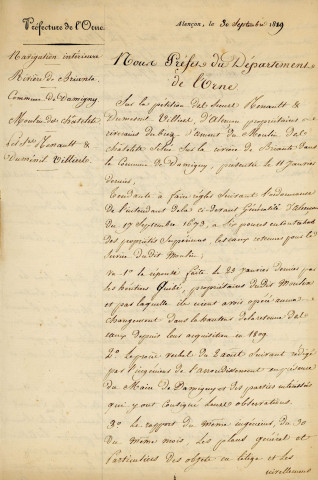 Préfecture de l'Orne.
Alençon, le 30 Septembre 1829
Navigation intérieure
Rivière de Briante
Commune de Damigny
Moulin des Chatelets
Les Srs Henault &
Dumesnil Villars
Nous Préfet du Département
de l'Orne
Sur la pétition des Sieurs Henault &
Dumesnil Villars d'Alençon propriétaires
Moulin
Chatelets Situé Sur la rivière de Briante dans
la Commune de Damigny, présentée le 11 Janvier
dernier,
Tendante à faire régler Suivant l'ordonnance
de l'intendant de la ci-devant Généralité d'Alençon
du 17 Septembre 1673,
des propriétés Supérieures, les eaux retenues pour le
Service du dit Moulin;
Vu 1° la réponse faite le 29 Janvier dernier par
les héritiers propriétaires du Dit Moulin
et par laquelle ils nient avoir opéré aucun
changement dans la hauteur de la retenue des
eaux depuis leur acquisition en 1809.
2° Le procès verbal du 2 août Suivant rédigé
par l'ingénieur de l'arrondissement en présence
du Maire de Damigny et des parties intéressées
qui y ont consigné leurs observations.
3° Le rapport du même ingénieur, du 30
du même mois, les plans général et
particuliers des objets en litige et les
nivellement